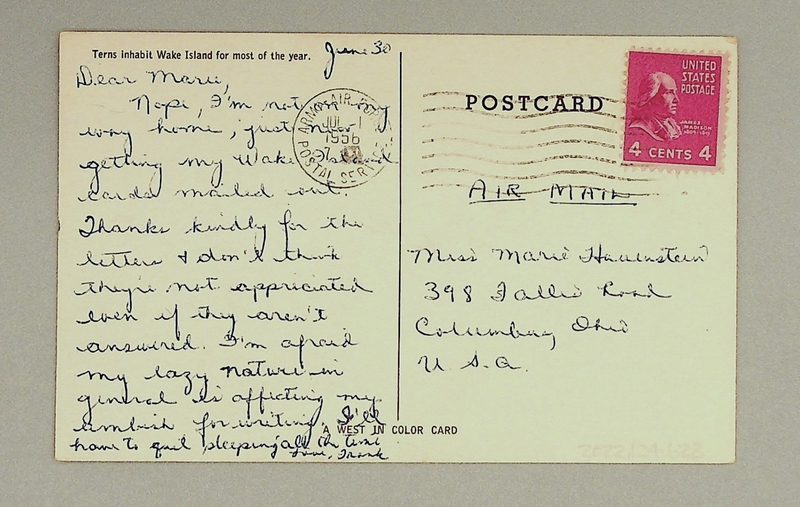 Terns inhabit Wake Island for most of the year.
June 30
Dear Marie,
Nope, I'm not on my
way home, just now
getting my Wake Island
cards mailed out.
Thanks kindly for the
letters & don't think
they're not appreciated
even if they aren't
answered. I'm afraid
my lazy nature in
general is affecting my
ambish for writing. I'll
have to quit sleeping all the time
Love, Frank
A WEST IN COLOR CARD
ARMY-AIR FORCE
JUL -1
1956
POSTAL SERVICE
POSTCARD
UNITED
STATES
POSTAGE
JAMES
MADISON
4 CENTS 4
AIR MAIL
Miss Marie Hauenstein
398 Fallis Road
Columbus, Ohio
U.S.A.